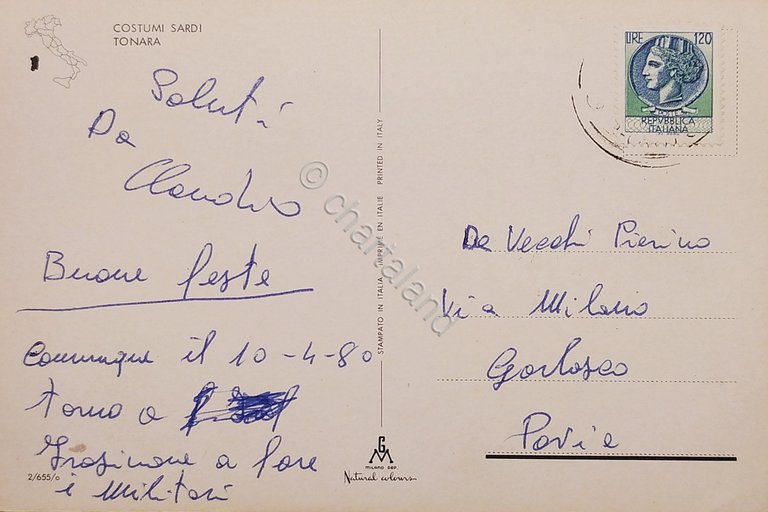 COSTUMI SARDI
TONARA
Saluti
Da
Claudio
Buone feste
Comunque il 10-4-80
torno a
Frosinone a fare
i militari
2/655/o
STAMPATO IN ITALIA IMPRIMÉ EN ITALIE PRINTED IN ITALY
GM
MILANO DEP.
Natural colours
LIRE 120
REPVBBLICA
ITALIANA
De Vecchi Pierino
Via Milano
Garlasco
Pavia
© chartaland